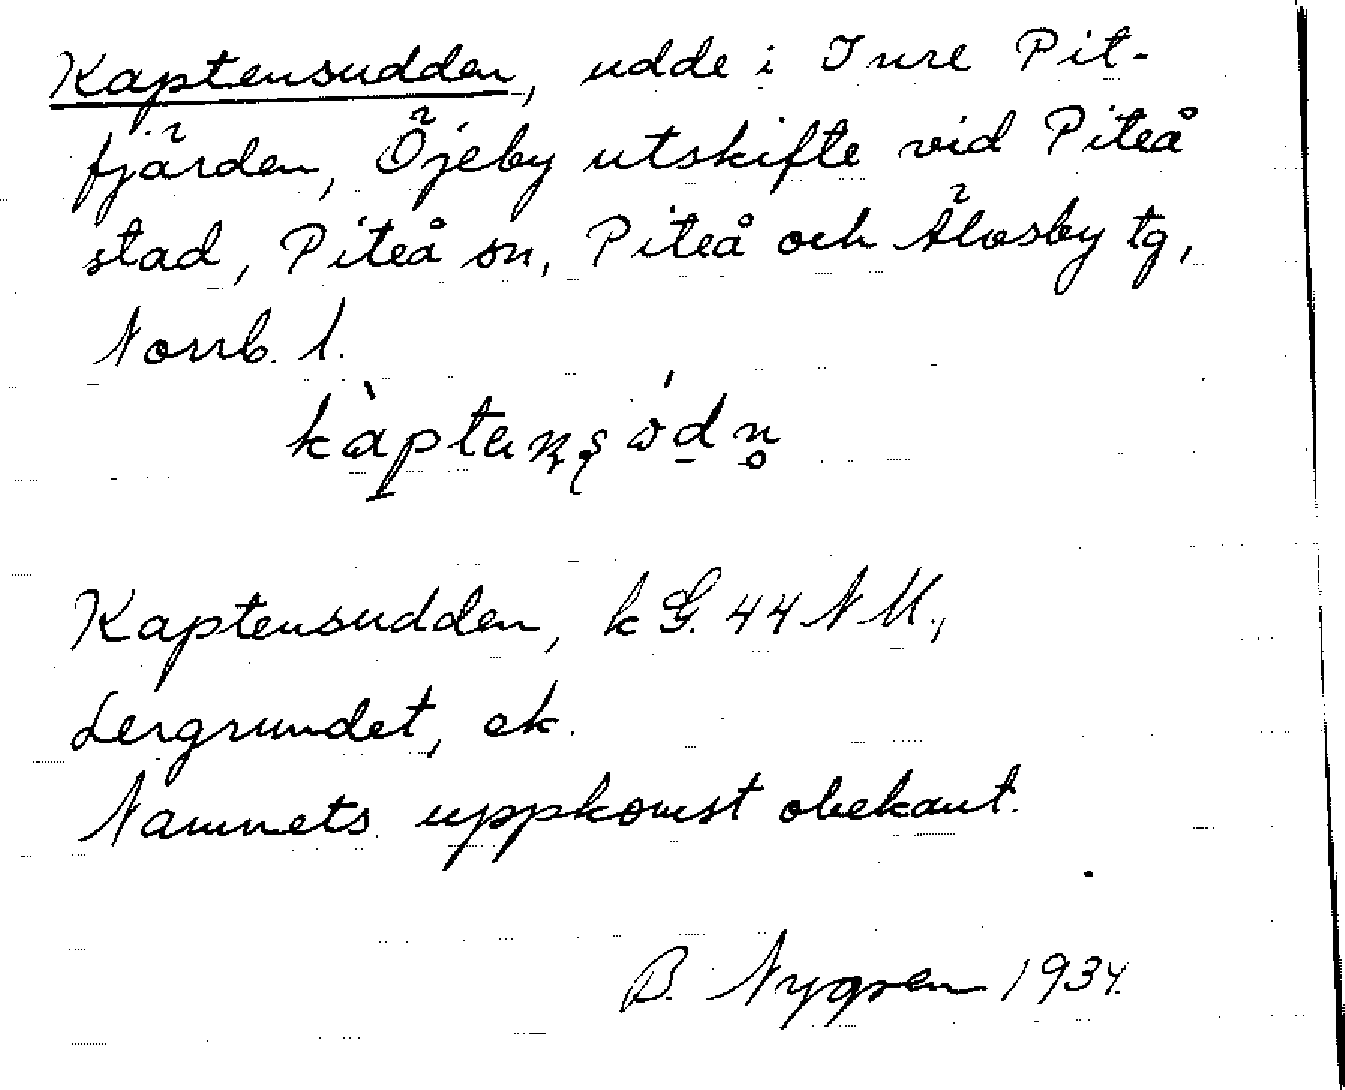 Kaptensudden, udde i Inre Pit-
fjärden, Öjeby utskifte vid Piteå
stad, Piteå sn, Piteå och Älvsby tg,
Norrb. l.
Kaptensudden, k G. 44 N M.,
Lergrundet, ek.
Namnets uppkomst obekant.
B. Nygren 1934.